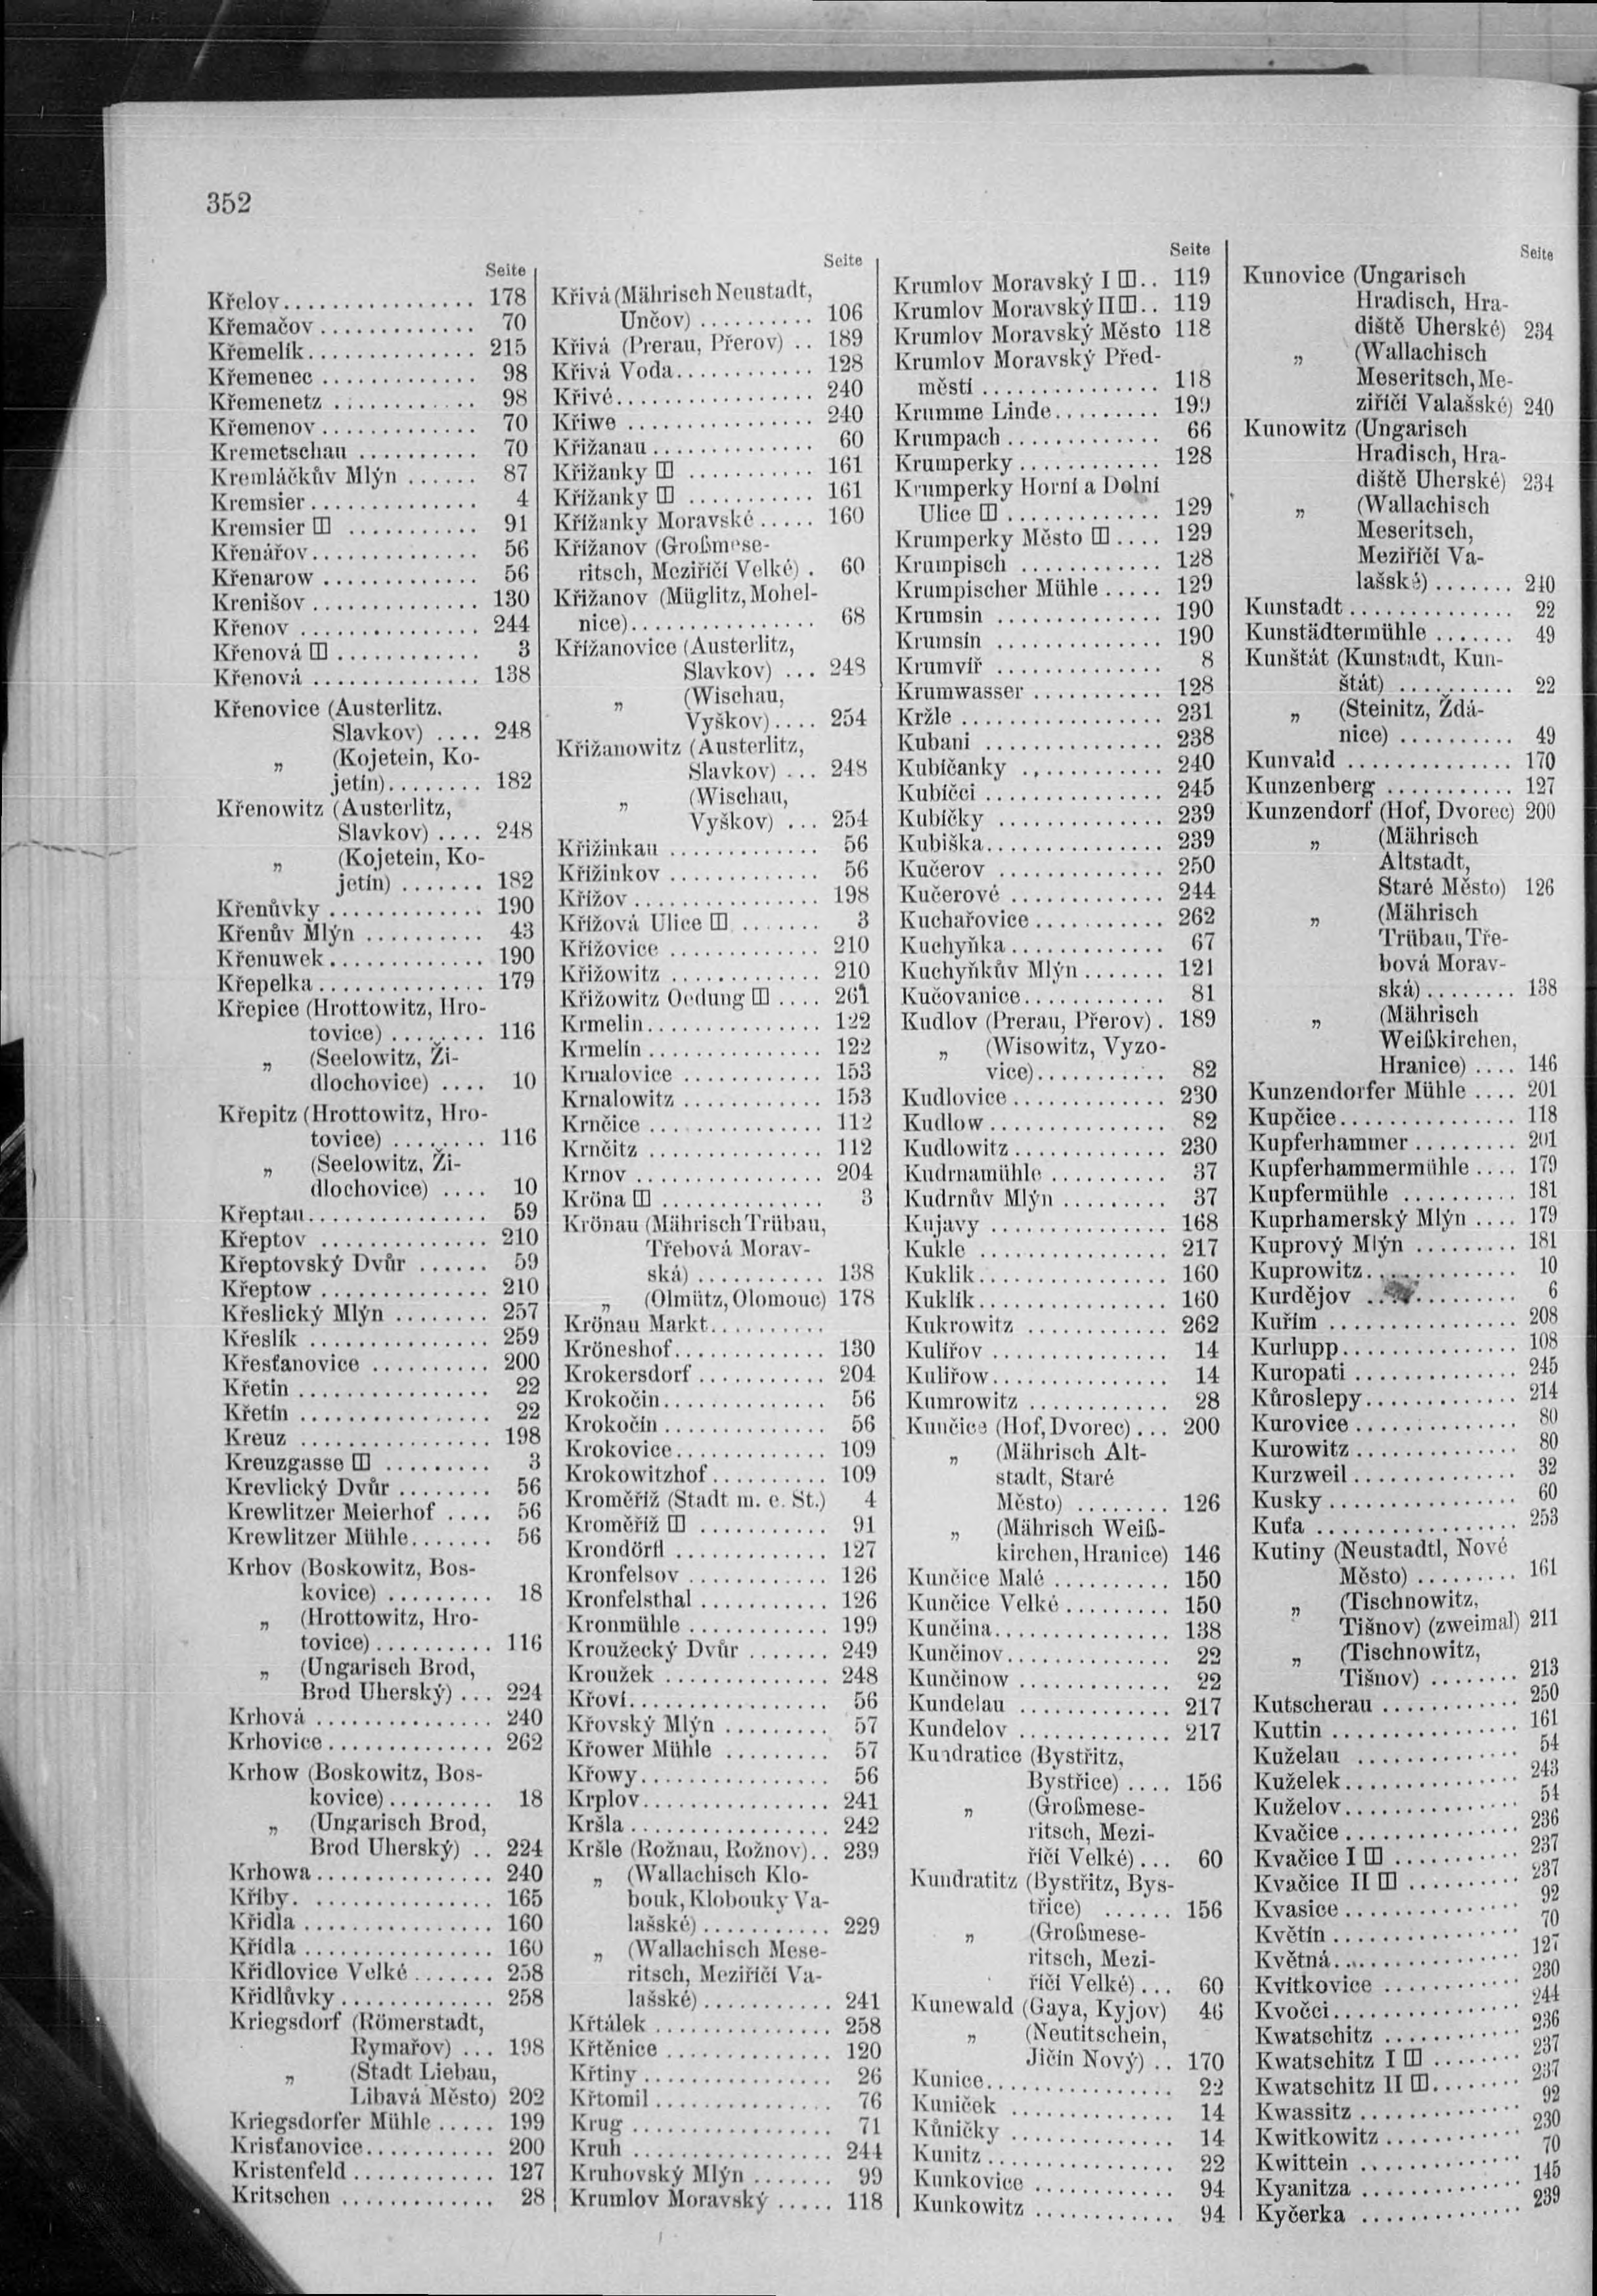 352
Seite
Křelov................ 178
Křemačov............. 70
Křemelík.............. 215
Křemenec............. 98
Křemenetz............ 98
Křemenov............. 70
Kremetschau.......... 70
Kremláčkův Mlýn...... 87
Kremsier.............. 4
Kremsier ⊞........... 91
Křenářov.............. 56
Křenarow............. 56
Krenišov.............. 130
Křenov............... 244
Křenová ⊞............ 3
Křenová.............. 138
Křenovice (Austerlitz.
Slavkov).... 248
„ (Kojetein, Ko-
jetín)........ 182
Křenowitz (Austerlitz,
Slavkov).... 248
„ (Kojetein, Ko-
jetín)....... 182
Křenůvky............. 190
Křenův Mlýn.......... 43
Křenuwek............. 190
Křepelka.............. 179
Křepice (Hrottowitz, Hro-
tovice)........ 116
„ (Seelowitz, Ži-
dlochovice).... 10
Křepitz (Hrottowitz, Hro-
tovice)........ 116
„ (Seelowitz, Ži-
dlochovice).... 10
Křeptau............... 59
Křeptov.............. 210
Křeptovský Dvůr...... 59
Křeptow.............. 210
Křeslický Mlýn........ 257
Křeslík............... 259
Křesťanovice.......... 200
Křetin................ 22
Křetín................ 22
Kreuz................ 198
Kreuzgasse ⊞......... 3
Krevlický Dvůr........ 56
Krewlitzer Meierhof.... 56
Krewlitzer Mühle....... 56
Krhov (Boskowitz, Bos-
kovice)......... 18
„ (Hrottowitz, Hro-
tovice).......... 116
„ (Ungarisch Brod,
Brod Uherský)... 224
Krhová............... 240
Krhovice.............. 262
Krhow (Boskowitz, Bos-
kovice)......... 18
„ (Ungarisch Brod,
Brod Uherský).. 224
Krhowa............... 240
Křiby................. 165
Křidla................ 160
Křídla................ 160
Křídlovice Velké....... 258
Křídlůvky............. 258
Kriegsdorf (Römerstadt,
Rymařov)... 198
„ (Stadt Liebau,
Libavá Město) 202
Kriegsdorfer Mühle..... 199
Krisťanovice........... 200
Kristenfeld............ 127
Kritschen............. 28
Seite
Křivá (Mährisch Neustadt,
Unčov).......... 106
Křivá (Prerau, Přerov).. 189
Křivá Voda............ 128
Křivé................. 240
Křiwe................ 240
Křižanau.............. 60
Křižanky ⊞........... 161
Křížanky ⊞........... 161
Křížanky Moravské..... 160
Křížanov (Großmese-
ritsch, Meziříčí Velké). 60
Křižanov (Müglitz, Mohel-
nice)................ 68
Křížanovice (Austerlitz,
Slavkov)... 248
„ (Wischau,
Vyškov).... 254
Křižanowitz (Austerlitz,
Slavkov)... 248
„ (Wischau,
Vyškov)... 254
Křižinkau............. 56
Křižínkov............. 56
Křížov................ 198
Křížová Ulice ⊞....... 3
Křížovice............. 210
Křižowitz............. 210
Křižowitz Oedung ⊞.... 261
Krmelin............... 122
Krmelín............... 122
Krnalovice............ 153
Krnalowitz............ 153
Krnčice............... 112
Krnčitz............... 112
Krnov................ 204
Kröna ⊞.............. 3
Krönau (Mährisch Trübau,
Třebová Morav-
ská)........... 138
„ (Olmütz, Olomouc) 178
Krönau Markt..........
Kröneshof............. 130
Krokersdorf........... 204
Krokočin.............. 56
Krokočín.............. 56
Krokovice............. 109
Krokowitzhof.......... 109
Kroměříž (Stadt m. e. St.) 4
Kroměříž ⊞........... 91
Krondörfl............. 127
Kronfelsov............ 126
Kronfelsthal........... 126
Kronmühle............ 199
Kroužecký Dvůr....... 249
Kroužek.............. 248
Křoví................. 56
Křovský Mlýn......... 57
Křower Mühle......... 57
Křowy................ 56
Krplov................ 241
Kršla................. 242
Kršle (Rožnau, Rožnov).. 239
„ (Wallachisch Klo-
bouk, Klobouky Va-
lašské)........... 229
„ (Wallachisch Mese-
ritsch, Meziříčí Va-
lašské)........... 241
Křtálek............... 258
Křtěnice.............. 120
Křtiny................ 26
Křtomil............... 76
Krug................. 71
Kruh................. 244
Kruhovský Mlýn....... 99
Krumlov Moravský..... 118
Seite
Krumlov Moravský I ⊞.. 119
Krumlov Moravský II ⊞.. 119
Krumlov Moravský Město 118
Krumlov Moravský Před-
městí............... 118
Krumme Linde......... 199
Krumpach............. 66
Krumperky............ 128
Krumperky Horní a Dolní
Ulice ⊞............. 129
Krumperky Město ⊞.... 129
Krumpisch............ 128
Krumpischer Mühle..... 129
Krumsin.............. 190
Krumsín.............. 190
Krumvíř.............. 8
Krumwasser........... 128
Kržle................. 231
Kubani............... 238
Kubíčanky............ 240
Kubíčci............... 245
Kubíčky.............. 239
Kubiška............... 239
Kučerov.............. 250
Kučerové............. 244
Kuchařovice........... 262
Kuchyňka............. 67
Kuchyňkův Mlýn....... 121
Kučovanice............ 81
Kudlov (Prerau, Přerov). 189
„ (Wisowitz, Vyzo-
vice)........... 82
Kudlovice............. 230
Kudlow............... 82
Kudlowitz............. 230
Kudrnamühle.......... 37
Kudrnův Mlýn......... 37
Kujavy............... 168
Kukle................ 217
Kuklik................ 160
Kuklík................ 160
Kukrowitz............ 262
Kulířov............... 14
Kuliřow............... 14
Kumrowitz............ 28
Kunčice (Hof, Dvorec)... 200
„ (Mährisch Alt-
stadt, Staré
Město)........ 126
„ (Mährisch Weiß-
kirchen, Hranice) 146
Kunčice Malé.......... 150
Kunčice Velké......... 150
Kunčina............... 138
Kunčinov.............. 22
Kunčinow............. 22
Kundelau............. 217
Kundelov............. 217
Kundratice (Bystřitz,
Bystřice).... 156
„ (Großmese-
ritsch, Mezi-
říčí Velké)... 60
Kundratitz (Bystřitz, Bys-
třice)...... 156
„ (Großmese-
ritsch, Mezi-
říčí Velké)... 60
Kunewald (Gaya, Kyjov) 46
„ (Neutitschein,
Jičín Nový).. 170
Kunice................ 22
Kuníček.............. 14
Kůničky.............. 14
Kunitz................ 22
Kunkovice............ 94
Kunkowitz............ 94
Seite
Kunovice (Ungarisch
Hradisch, Hra-
diště Uherské) 234
„ (Wallachisch
Meseritsch, Me-
ziříčí Valašské) 240
Kunowitz (Ungarisch
Hradisch, Hra-
diště Uherské) 234
„ (Wallachisch
Meseritsch,
Meziříčí Va-
lašské)....... 240
Kunstadt.............. 22
Kunstädtermühle....... 49
Kunštát (Kunstadt, Kun-
štát).......... 22
„ (Steinitz, Ždá-
nice).......... 49
Kunvald.............. 170
Kunzenberg........... 127
Kunzendorf (Hof, Dvorec) 200
„ (Mährisch
Altstadt,
Staré Město) 126
„ (Mährisch
Trübau, Tře-
bová Morav-
ská)........ 138
„ (Mährisch
Weißkirchen,
Hranice).... 146
Kunzendorfer Mühle.... 201
Kupčice............... 118
Kupferhammer......... 201
Kupferhammermühle.... 179
Kupfermühle.......... 181
Kuprhamerský Mlýn.... 179
Kuprový Mlýn......... 181
Kuprowitz............. 10
Kurdějov............. 6
Kuřim................ 208
Kurlupp............... 108
Kuropati.............. 245
Kůroslepy............. 214
Kurovice.............. 80
Kurowitz.............. 80
Kurzweil.............. 32
Kusky................ 60
Kuťa................. 253
Kutiny (Neustadtl, Nové
Město)......... 161
„ (Tischnowitz,
Tišnov) (zweimal) 211
„ (Tischnowitz,
Tišnov)........ 213
Kutscherau............ 250
Kuttin................ 161
Kuželau.............. 54
Kuželek............... 243
Kuželov............... 54
Kvačice............... 236
Kvačice I ⊞........... 237
Kvačice II ⊞.......... 237
Kvasice............... 92
Květín................ 70
Květná................ 127
Kvítkovice............ 230
Kvočci................ 244
Kwatschitz............ 236
Kwatschitz I ⊞........ 237
Kwatschitz II ⊞........ 237
Kwassitz.............. 92
Kwitkowitz............ 230
Kwittein.............. 70
Kyanitza.............. 145
Kyčerka.............. 239